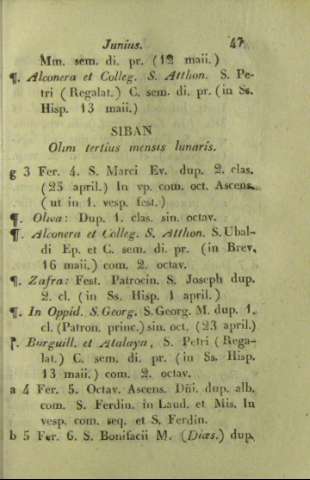 Junius. 47
Mm. sem. di. pr. (12 maii.)
¶. Alconera et Colleg. S. Atthon. S. Pe-
tri (Regalat.) C. sem. di. pr. (in Ss.
Hisp. 13 maii.)
SIBAN
Olim tertius mensis lunaris.
g 3 Fer. 4. S. Marci Ev. dup. 2. clas.
(25 april.) In vp. com. oct. Ascens.
(ut in 1. vesp. fest.)
¶. Oliva: Dup. 1. clas. sin. octav.
¶. Alconera et Colleg. S. Atthon. S. Ubal-
di Ep. et C. sem. di. pr. (in Brev.
16 maii.) com. 2. octav.
¶. Zafra: Fest. Patrocin. S. Joseph dup.
2. cl. (in Ss. Hisp. 1 april.)
¶. In Oppid. S. Georg. S. Georg. M. dup. 1.
cl. (Patron. princ.) sin. oct. (23 april.)
¶. Burguill. et Atalaya, S. Petri (Rega-
lat.) C. sem. di. pr. (in Ss. Hisp.
13 maii.) com. 2. octav.
a 4 Fer. 5. Octav. Ascens. Dñi. dup. alb.
com. S. Ferdin. in Laud. et Mis. In
vesp. com. seq. et S. Ferdin.
b 5 Fer. 6. S. Bonifacii M. (Diœs.) dup.